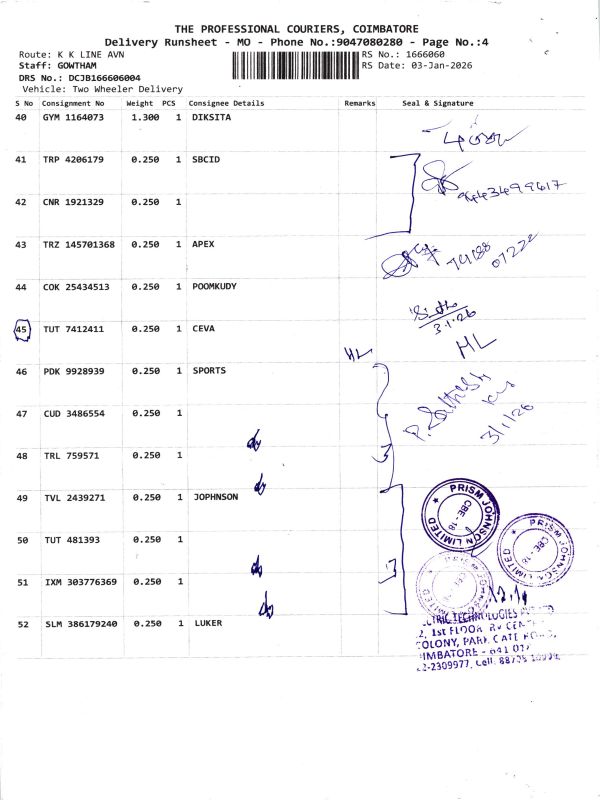 THE PROFESSIONAL COURIERS, COIMBATORE
Delivery Runsheet - MO - Phone No.:9047080280 - Page No.:4
Route: K K LINE AVN
RS No.: 1666060
Staff: GOWTHAM
RS Date: 03-Jan-2026
DRS No.: DCJB166606004
Vehicle: Two Wheeler Delivery
S No Consignment No Weight PCS Consignee Details Remarks Seal & Signature
40 GYM 1164073 1.300 1 DIKSITA
41 TRP 4206179 0.250 1 SBCID
9443499617
42 CNR 1921329 0.250 1
43 TRZ 145701368 0.250 1 APEX
74188 07222
44 COK 25434513 0.250 1 POOMKUDY
3.1.26
45 TUT 7412411 0.250 1 CEVA
HL HL
46 PDK 9928939 0.250 1 SPORTS
47 CUD 3486554 0.250 1
3/1/26
48 TRL 759571 0.250 1
3
do
do
49 TVL 2439271 0.250 1 JOPHNSON
PRISM JOHNSON LIMITED
CBE - 18
50 TUT 481393 0.250 1
PRISM JOHNSON LIMITED
CBE - 18
51 IXM 303776369 0.250 1
3
do
do
52 SLM 386179240 0.250 1 LUKER
TECHNOLOGIES
2, 1st FLOOR
COLONY, PARK GATE
IMBATORE - 641 01
2-2309977, Cell: 88705